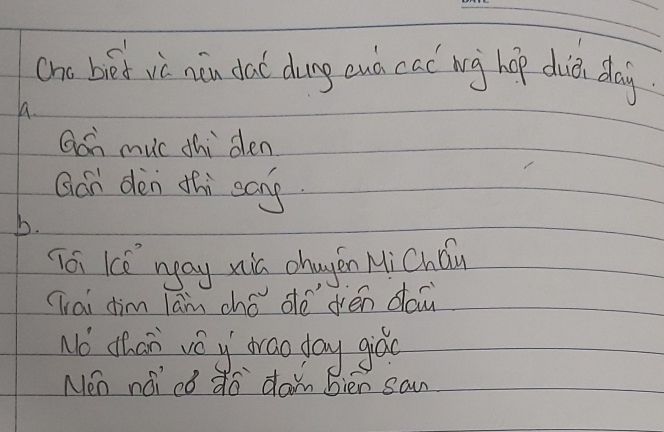 Cho biết và nêu tác dụng của các trg hợp dưới đây.
a.
Gần mực thì đen
Gần đèn thì sáng.
b.
Tôi kể ngày xưa chuyện Mị Châu
Trái tim lầm chỗ để trên đầu
Nỏ thần vô ý trao tay giặc
Nên nỗi cơ đồ đắm biển sâu